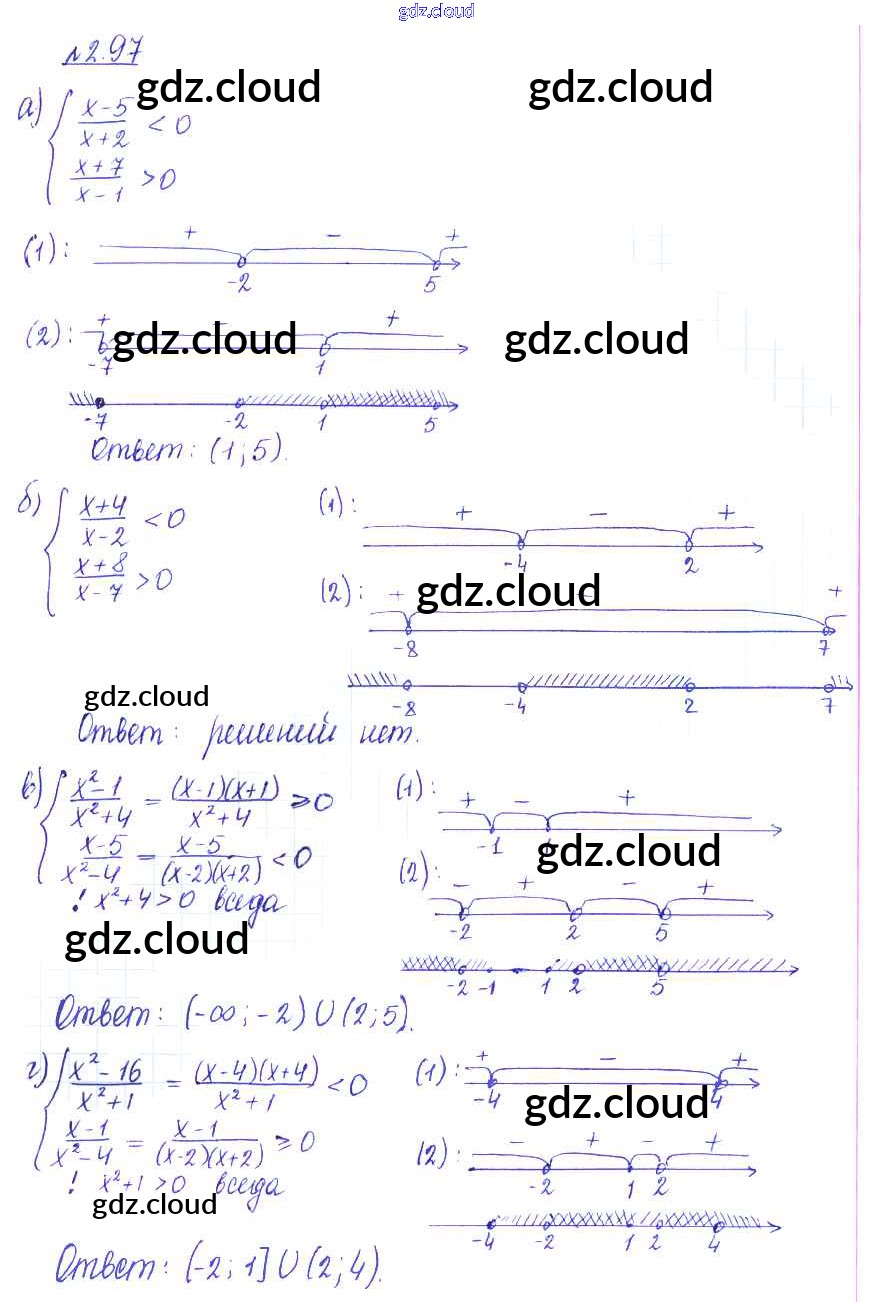 gdz.cloud
№2.97
gdz.cloud gdz.cloud
а) { (x-5)/(x+2) < 0
(x+7)/(x-1) > 0
(1): + - +
-2 5
(2): + - +
gdz.cloud gdz.cloud
-7 1
-7 -2 1 5
Ответ: (1;5).
б) { (x+4)/(x-2) < 0
(x+8)/(x-7) > 0
(1): + - +
-4 2
(2): + +
gdz.cloud
-8 7
-8 -4 2 7
gdz.cloud
Ответ: решений нет.
в) { (x²-1)/(x²+4) = (x-1)(x+1)/(x²+4) ⩾ 0
(x-5)/(x²-4) = (x-5)/((x-2)(x+2)) < 0
! x²+4>0 всегда
(1): + - +
-1
gdz.cloud
(2): - + - +
-2 2 5
gdz.cloud
-2 -1 1 2 5
Ответ: (-∞;-2)∪(2;5).
г) { (x²-16)/(x²+1) = (x-4)(x+4)/(x²+1) < 0
(x-1)/(x²-4) = (x-1)/((x-2)(x+2)) ⩾ 0
! x²+1>0 всегда
(1): + - +
-4 4
gdz.cloud
(2): - + - +
-2 1 2
gdz.cloud
-4 -2 1 2 4
Ответ: (-2;1]∪(2;4).